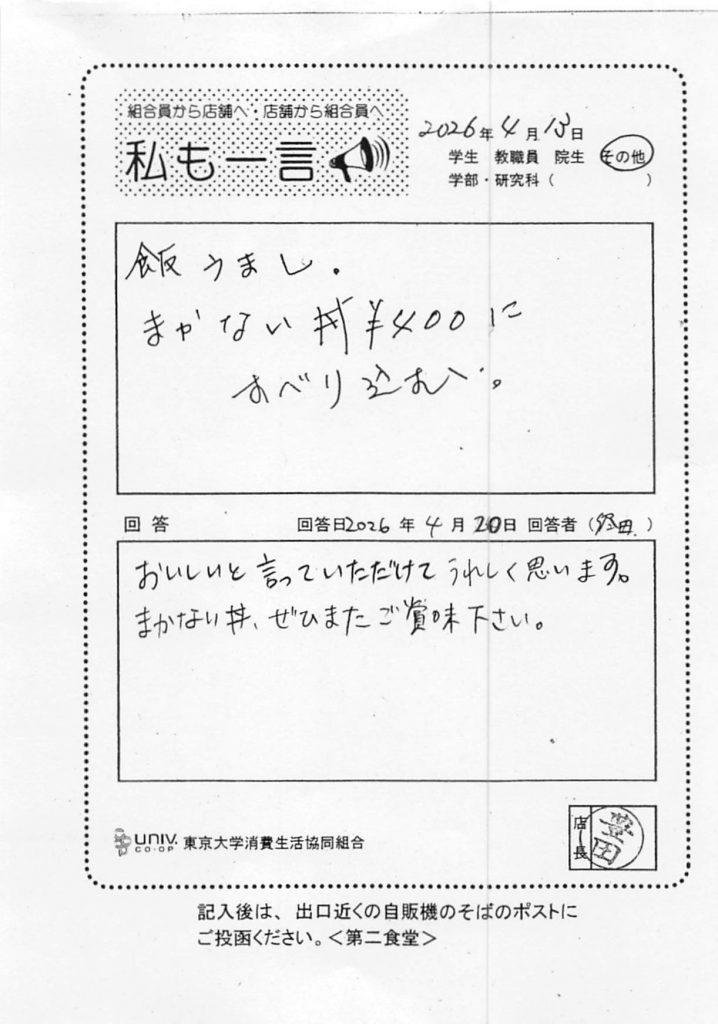 組合員から店舗へ・店舗から組合員へ
私も一言
2026年4月13日
学生 教職員 院生 その他
学部・研究科（ ）
飯うまし.
まかない丼¥400に
すべり込むべ。
回答 回答日2026年4月20日 回答者（豊田）
おいしいと言っていただけてうれしく思います。
まかない丼、ぜひまたご賞味下さい。
店長
豊田
UNIV. CO-OP 東京大学消費生活協同組合
記入後は、出口近くの自販機のそばのポストに
ご投函ください。＜第二食堂＞